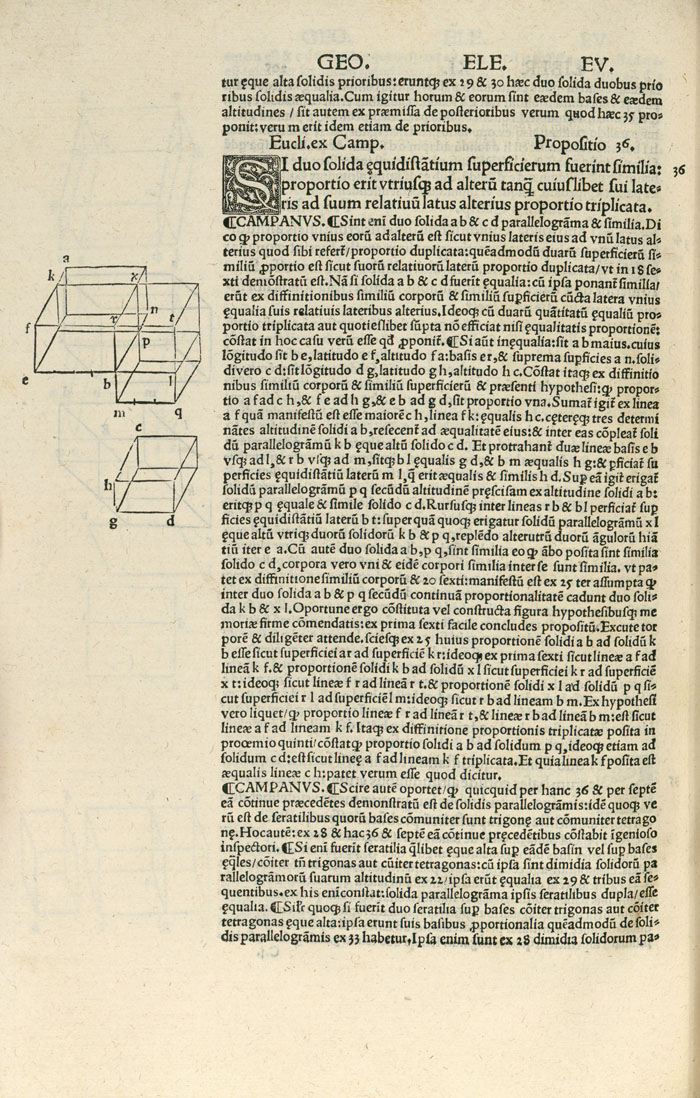 GEO. ELE. EV.
tur ęque alta solidis prioribus: eruntq̃ ex 29 & 30 hæc duo solida duobus prio
ribus solidis æqualia. Cum igitur horum & eorum sint eædem bases & eædem
altitudines / sit autem ex præmissa de posterioribus verum quod hæc 35 pro⸗
ponit: verum erit idem etiam de prioribus.
Eucli. ex Camp. Propositio 36.
SI duo solida ęquidistãtium superficierum fuerint similia: 36
proportio erit vtriusq̃ ad alterũ tanq̃ cuiuslibet sui late⸗
ris ad suum relatiuũ latus alterius proportio triplicata.
¶CAMPANVS. ¶Sint enĩ duo solida a b & c d parallelogrãma & similia. Di
co ꝙ proportio vnius eorũ ad alterũ est sicut vnius lateris eius ad vnũ latus al⸗
terius quod sibi refert / proportio duplicata: quẽadmodũ duarũ superficierũ si⸗
miliũ ꝓportio est sicut suorũ relatiuorũ laterũ proportio duplicata / vt in 18 se⸗
xti demõstratũ est. Nã si solida a b & c d fuerit ęqualia: cũ ipsa ponant̃ similia /
erũt ex diffinitionibus similiũ corporũ & similiũ sup̃ficierũ cũcta latera vnius
ęqualia suis relatiuis lateribus alterius. Ideoq̃ cũ duarũ quãtitatũ ęqualiũ pro⸗
portio triplicata aut quotieslibet sũpta nõ efficiat nisi ęqualitatis proportionẽ:
cõstat in hoc casu verũ esse qđ ꝓponit̃. ¶Si aũt inęqualia: sit a b maius. cuius
lõgitudo sit b e, latitudo e f, altitudo f a: basis e r, & suprema supficies a n. soli⸗
di vero c d: sit lõgitudo d g, latitudo g h, altitudo h c. Cõstat itaq̃ ex diffinitio
nibus similiũ corporũ & similiũ superficierũ & præsenti hypothesi: ꝙ propor⸗
tio a f ad c h, & f e ad h g, & e b ad g d, sit proportio vna. Sumat̃ igit̃ ex linea
a f quã manifestũ est esse maiorẽ c h, linea f k: ęqualis h c. cęteręq̃ tres determi
nãtes altitudinẽ solidi a b, resecent̃ ad æqualitatẽ eius: & inter eas cõpleat̃ soli
dũ parallelogrãmũ k b ęque altũ solido c d. Et protrahant̃ duæ lineæ basis e b
vsq̃ ad l, & r b vsq̃ ad m, sitq̃ b l ęqualis g d, & b m æqualis h g: & ꝑficiat̃ su
perficies ęquidistãtiũ laterũ m l, q̃ erit æqualis & similis h d. Sup eã igit̃ erigat̃
solidũ parallelogrãmũ p q secũdũ altitudinẽ pręscisam ex altitudine solidi a b:
eritq̃ p q ęquale & simile solido c d. Rursusq̃ inter lineas r b & b l perficiat̃ sup
ficies ęquidistãtiũ laterũ b t: super quã quoq̃ erigatur solidũ parallelogrãmũ x l
ęque altũ vtriq̃ duorũ solidorũ k b & p q, replẽdo alterutrũ duorũ ãgulorũ hiã
tiũ iter e a. Cũ autẽ duo solida a b, p q, sint similia eo ꝙ ãbo posita sint similia
solido c d, corpora vero vni & eidẽ corpori similia inter se sunt similia. vt pa⸗
tet ex diffinitione similiũ corporũ & 20 sexti: manifestũ est ex 25 ter assumpta ꝙ
inter duo solida a b & p q secũdũ continuã proportionalitatẽ cadunt duo soli⸗
da k b & x l. Oportune ergo cõstituta vel constructa figura hypothesibusq̃ me
moriæ firme cõmendatis: ex prima sexti facile concludes propositũ. Excute tor
porẽ & diligẽter attende. sciesq̃ ex 25 huius proportionẽ solidi a b ad solidũ k
b esse sicut superficiei a r ad superficiẽ k r: ideoq̃ ex prima sexti sicut lineæ a f ad
lineã k f. & proportionẽ solidi k b ad solidũ x l sicut superficiei k r ad superficiẽ
x t: ideoq̃ sicut lineæ f r ad lineã r t. & proportionẽ solidi x l ad solidũ p q si⸗
cut superficiei r l ad superficiẽ l m: ideoq̃ sicut r b ad lineam b m. Ex hypothesi
vero liquet / ꝙ proportio lineæ f r ad lineã r t, & lineæ r b ad lineã b m: est sicut
lineæ a f ad lineam k f. Itaq̃ ex diffinitione proportionis triplicatæ posita in
proœmio quinti / cõstat ꝙ proportio solidi a b ad solidum p q, ideoq̃ etiam ad
solidum c d: est sicut lineę a f ad lineam k f triplicata. Et quia linea k f posita est
æqualis lineæ c h: patet verum esse quod dicitur.
¶CAMPANVS. ¶Scire autẽ oportet / ꝙ quicquid per hanc 36 & per septẽ
eã cõtinue præcedẽtes demonstratũ est de solidis parallelogrãmis: idẽ quoq̃ ve
rũ est de seratilibus quorũ bases cõmuniter sunt trigonę aut cõmuniter tetrago
nę. Hoc autẽ: ex 28 & hac 36 & septẽ eã cõtinue pręcedẽtibus cõstabit ĩgenioso
inspectori. ¶Si enĩ fuerit seratilia q̃libet ęque alta sup eãdẽ basin vel sup bases
ęq̃les / cõiter tñ trigonas aut cũiter tetragonas: cũ ipsa sint dimidia solidorũ pa
rallelogrãmorũ suarum altitudinũ ex 22 / ipsa erũt ęqualia ex 29 & tribus eã se⸗
quentibus. ex his enĩ constat: solida parallelogrãma ipsis seratilibus dupla / esse
ęqualia. ¶Silr̃ quoq̃ si fuerit duo seratilia sup bases cõiter trigonas aut cõiter
tetragonas ęque alta: ipsa erunt suis basibus ꝓportionalia quẽadmodũ de soli⸗
dis parallelogrãmis ex 33 habetur. Ipsa enim sunt ex 28 dimidia solidorum pa⸗
a
k x
f r n t
p
e b l
m q
c
h
g d